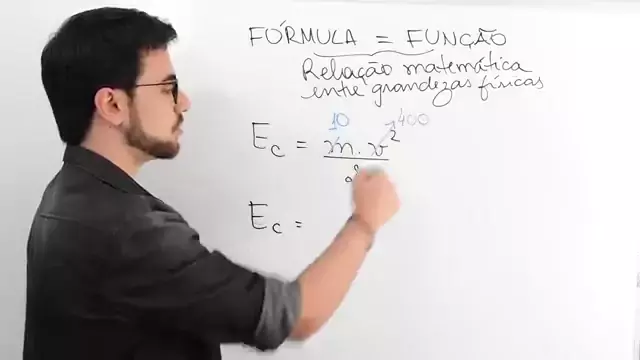 FÓRMULA = FUNÇÃO
Relação matemática
entre grandezas físicas
10 400
Ec = m.v²
2
Ec =